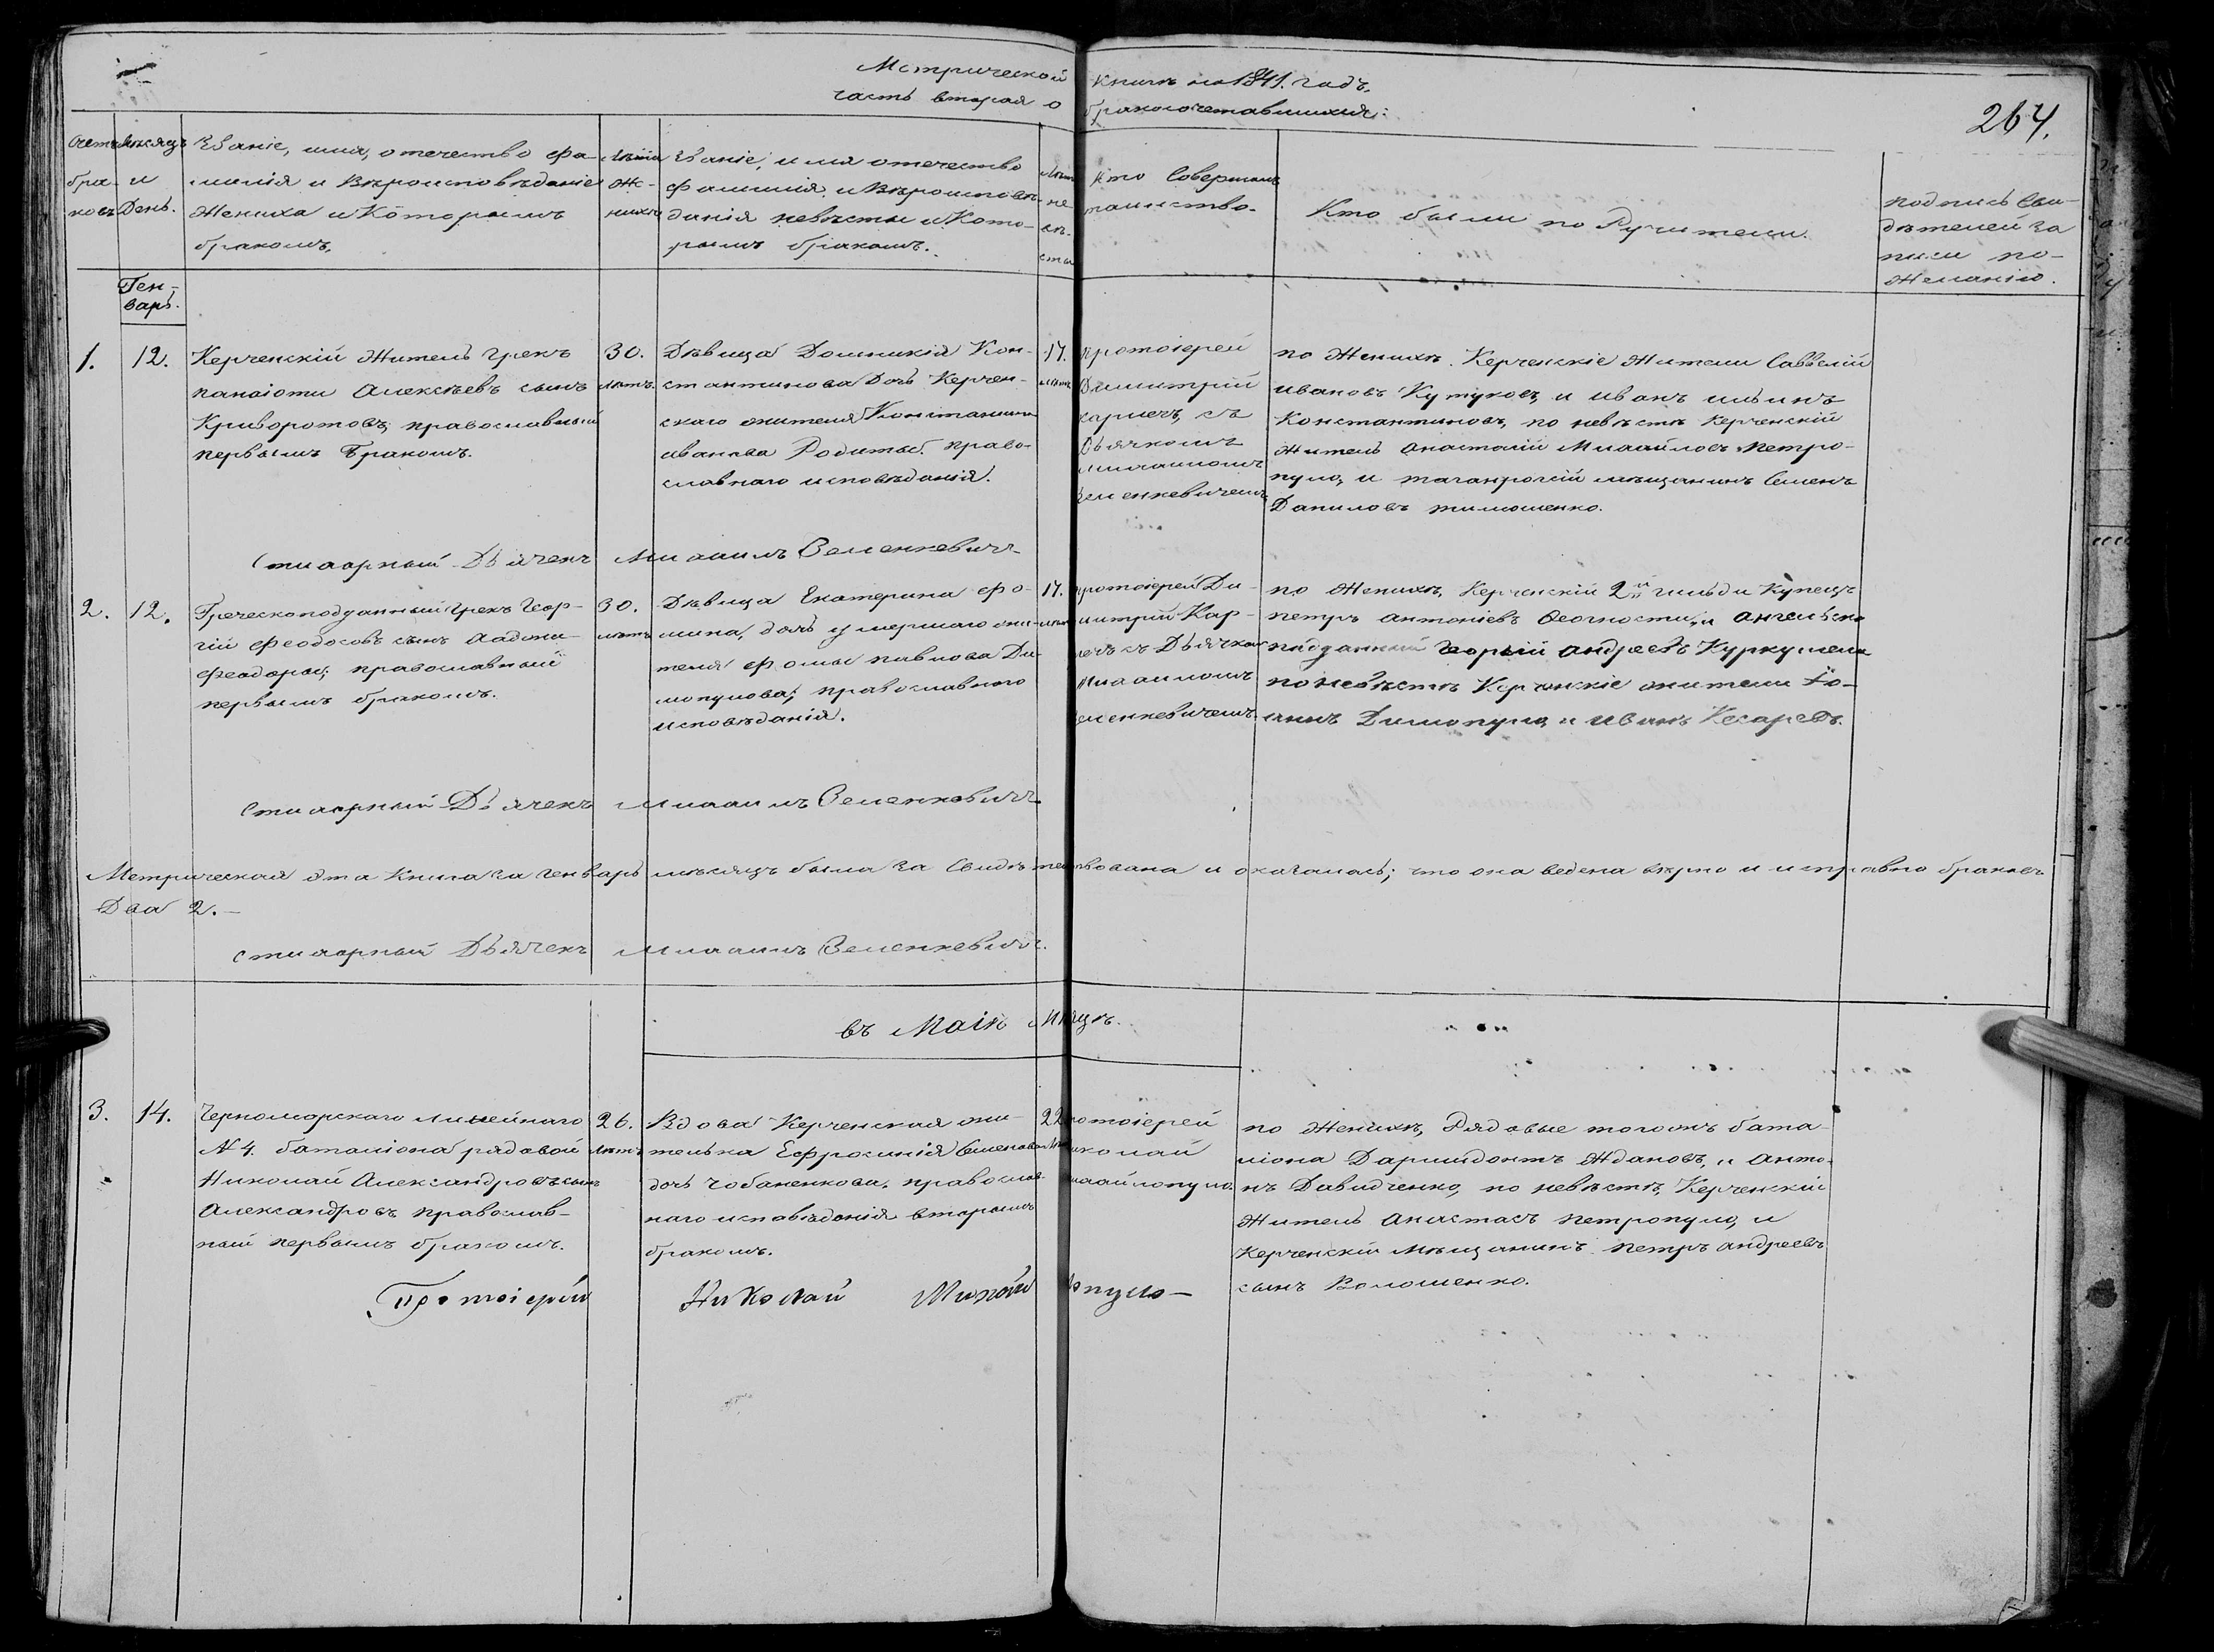 Метрической книги на 1841. годъ.
часть вторая о бракосочетавшихся:
264.
Счетъ бра-ковъ
Мѣсяцъ и День.
Званіе, имя, отечество фа-
милія и Вѣроисповѣданіе
Жениха и Которымъ
бракомъ.
Лѣта Же-ниха
Званіе, имя отечество
Фамилія и Вѣроисповѣ-
данія невѣсты и Кото-
рымъ бракомъ.
Лѣта не-вѣ-сты
Кто Совершалъ
таинство.
Кто были по Ручители.
подпись Сви-
дѣтелей за
писи по-
Желанію.
Ген-
варь.
1.
12.
Керченскій Житель Грекъ
панаіоти Алексѣевъ сынъ
Криворотовъ, православный
первымъ Бракомъ.
30.
лѣтъ.
Дѣвица Домникія Кон-
стантинова Дочь Керчен-
скаго жителя Константина
иванова Родиты. право-
славнаго исповѣданія.
17.
лѣтъ
протоіерей
Димитрій
карпечъ, съ
Дьячкомъ
Михаиломъ
Зеленкевичемъ
по Женихѣ. Керченскіе Жители Саввелій
ивановъ Кутуковъ, и иванъ ильинъ
Константиновъ, по невѣстѣ Керченскій
житель анастасій Михайловъ Петро-
пуло, и таганрогскій мѣщанинъ Семенъ
Даниловъ тимошенко.
Стихарный Дьячекъ Михаилъ Зеленкевичъ
2.
12.
Греческоподданный Грекъ Геор-
гій Феодосовъ сынъ
Феодоры, православный
первымъ бракомъ.
30.
лѣтъ
Дѣвица Екатерина Фо-
мина, дочь умершаго жи-
теля Фомы павлова Ди-
мопулова, православнаго
исповѣданія.
17.
лѣтъ
протоіерей Ди-
митрій Кар-
печъ съ Дьячкомъ
Михаиломъ
Зеленкевичемъ.
по Женихѣ, Керченскій 2й гильди Купецъ
петръ антоніевъ Ѳеогности, и Ангельско
подданный Георгій андреевъ Куркумели
по невѣстѣ Керченскіе жители Ѳо-
Димопуло, и иванъ Кесаревъ.
Стихарный Дьячекъ Михаилъ Зеленкевичъ
Метрическая эта Книга за генварь мѣсяцъ была за Свидѣтельствована и оказалась; что она ведена вѣрно и исправно браковъ
Два 2.–
стихарный Дьячекъ Михаилъ Зеленкевичъ.
въ Маіѣ Мѣсяцѣ.
3.
14.
Черноморскаго линейнаго
№ 4. баталіона рядовой
Николай Александровъ сынъ
Александровъ православ-
ный первымъ бракомъ.
26.
Лѣтъ
Вдова Керченская жи-
телька Ефросинія Семенова
дочь Чобаненкова, православ-
наго исповѣданія вторымъ
бракомъ.
22
протоіерей
Николай
Михайлопуло.
по Женихѣ, Рядовые тогожъ бата-
ліона Дармидонтъ Ждановъ, и Анто-
нъ Давидченко, по невѣстѣ, Керченскій
Житель Анастасъ петропуло, и
Керченскій Мѣщанинъ петръ андреевъ
сынъ Волошенко.
Протоіерей Николай Михайлопуло–